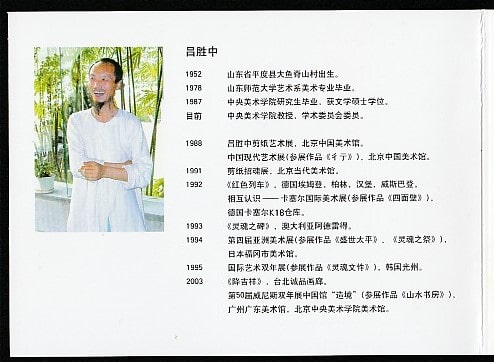 吕胜中
1952 山东省平度县大鱼脊山村出生。
1978 山东师范大学艺术系美术专业毕业。
1987 中央美术学院研究生毕业、获文学硕士学位。
目前 中央美术学院教授、学术委员会委员。
1988 吕胜中剪纸艺术展，北京中国美术馆。
中国现代艺术展(参展作品《彳亍》)，北京中国美术馆。
1991 剪纸招魂展，北京当代美术馆。
1992 《红色列车》，德国埃姆登，柏林，汉堡，威斯巴登。
相互认识——卡塞尔国际美术展(参展作品《四面壁》)，
德国卡塞尔K18仓库。
1993 《灵魂之碑》，澳大利亚阿德雷得。
1994 第四届亚洲美术展(参展作品《盛世太平》、《灵魂之祭》)，
日本福冈市美术馆。
1995 国际艺术双年展(参展作品《灵魂文件》)，韩国光州。
2003 《降吉祥》，台北诚品画廊。
第50届威尼斯双年展中国馆“造境”(参展作品《山水书房》)，
广州广东美术馆，北京中央美术学院美术馆。